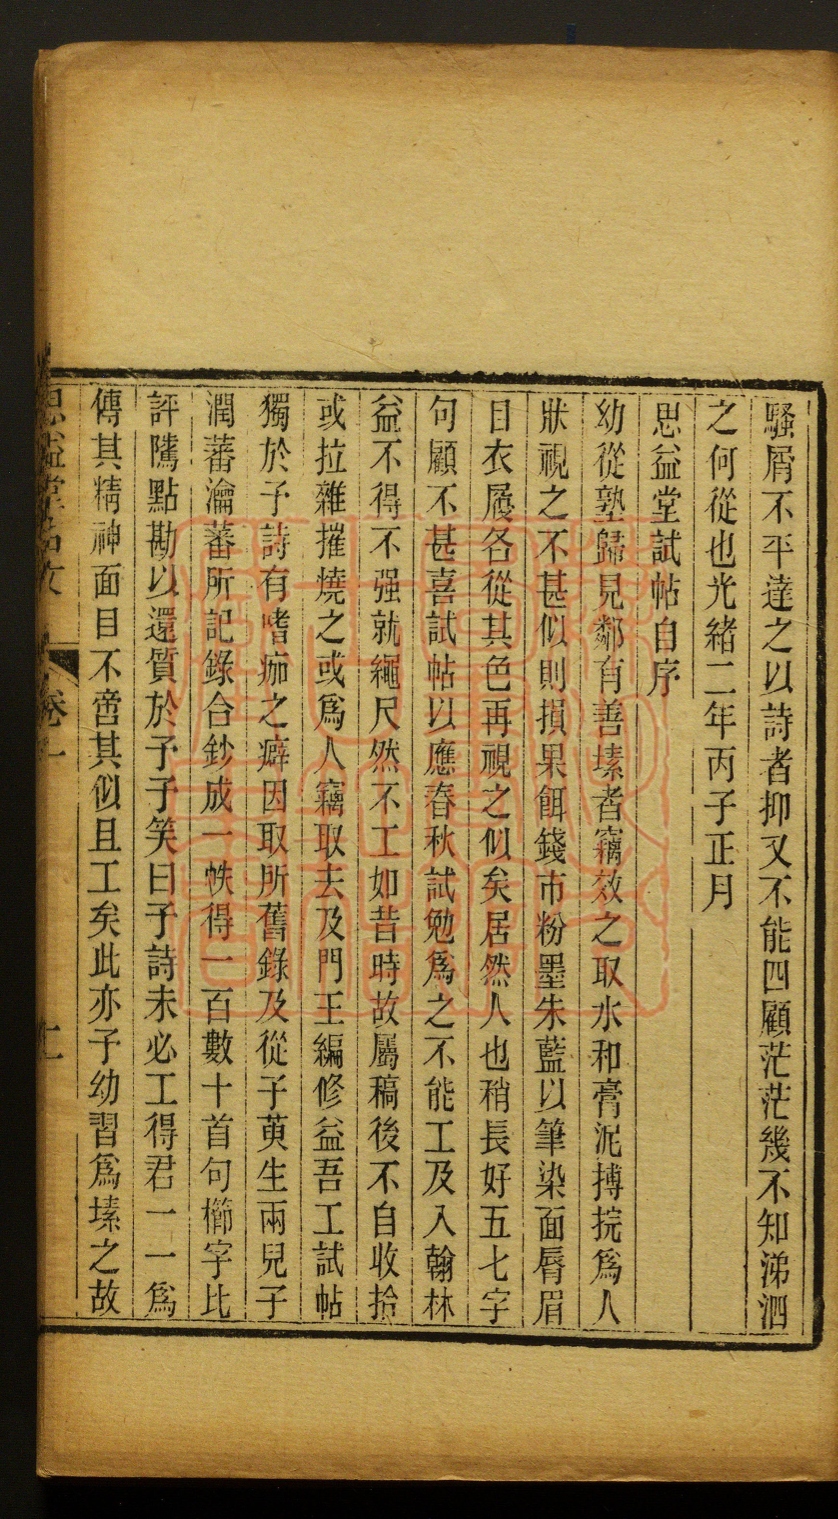 騷屑不平達之以詩者抑又不能四顧茫茫幾不知涕泗
之何從也光緒二年丙子正月
思益堂試帖自序
幼從塾歸見鄰有善塐者竊效之取水和膏泥搏捖爲人
狀視之不甚似則損果餌錢市粉墨朱藍以筆染面脣眉
目衣屨各從其色再視之似矣居然人也稍長好五七字
句顧不甚喜試帖以應春秋試勉爲之不能工及入翰林
益不得不强就繩尺然不工如昔時故屬稿後不自收拾
或拉雜摧燒之或爲人竊取去及門王編修益吾工試帖
獨於予詩有嗜痂之癖因取所舊錄及從子萸生兩兒子
潤蕃瀹蕃所記錄合鈔成一帙得一百數十首句櫛字比
評隲點勘以還質於予予笑曰予詩未必工得君一一爲
傳其精神面目不啻其似且工矣此亦予幼習爲塐之故
思益堂古文 卷一 十一